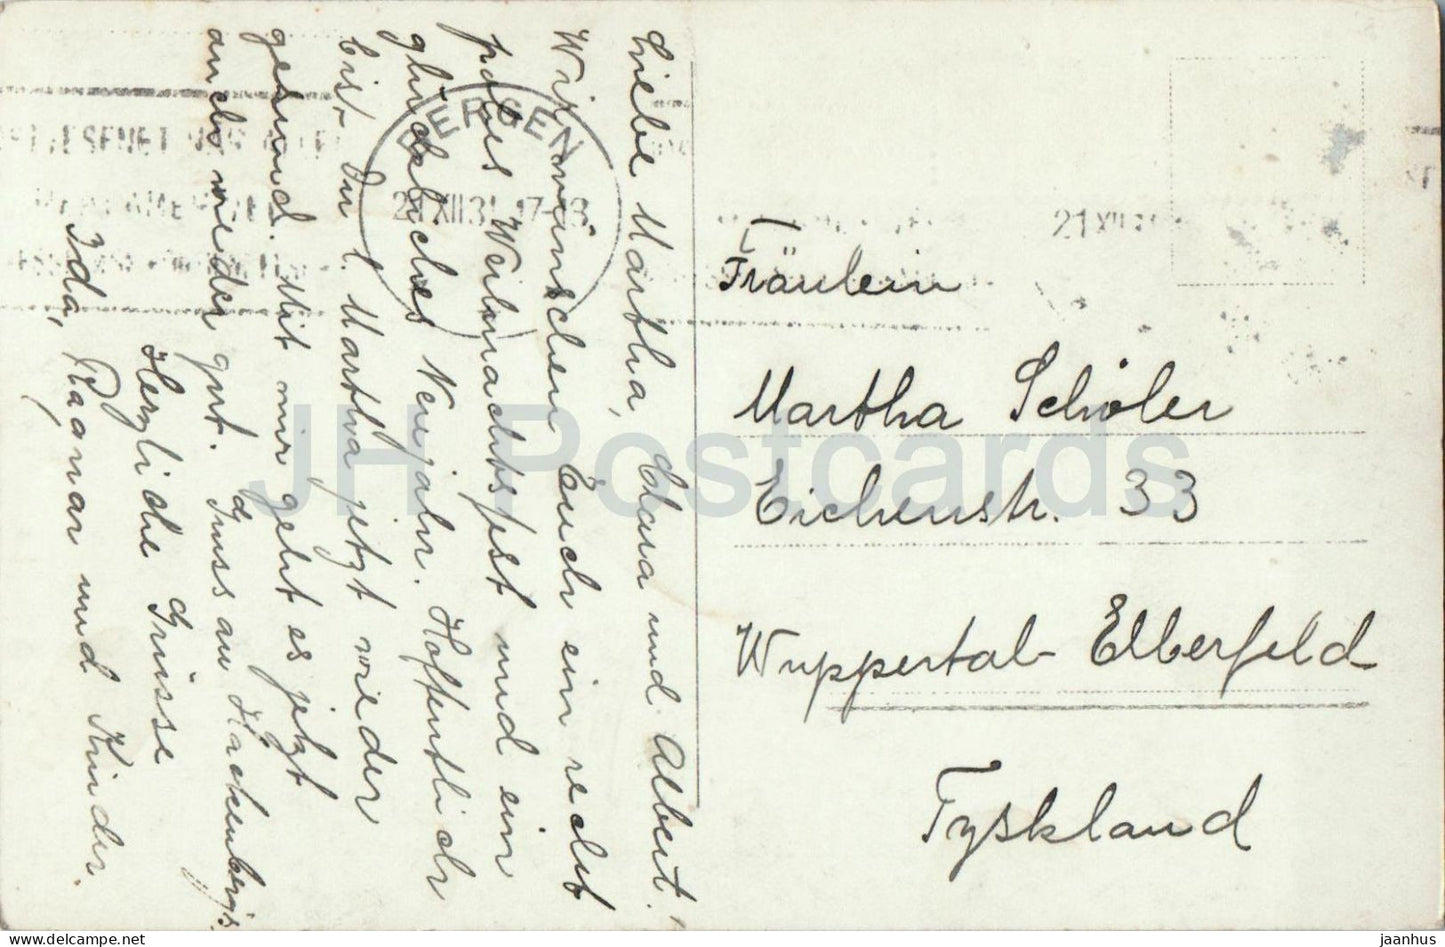 Liebe Martha, Clara und Albert!
Wir wünschen Euch ein recht
frohes Weihnachtsfest und ein
glückliches Neujahr. Hoffentlich
bist Du l. Martha jetzt wieder
gesund. Mit mir geht es jetzt
auch wieder gut. Gruss an Hackenberg's
Herzliche Grüsse
Ida, Ragnar und Kinder.
BERGEN
21 XII 31 17-18
21 XII
Fräulein
Martha Schöler
Eichenstr. 33
Wuppertal-Elberfeld
Tyskland
JH Postcards
delcampe.net
jaanhus